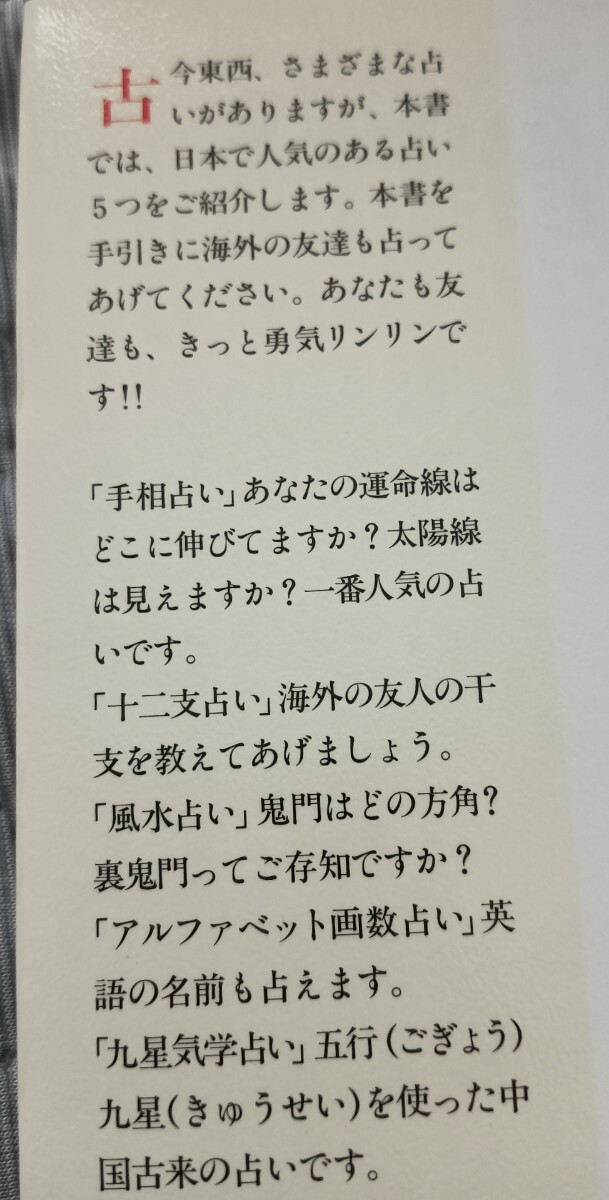 古今東西、さまざまな占
いがありますが、本書
では、日本で人気のある占い
5つをご紹介します。本書を
手引きに海外の友達も占って
あげてください。あなたも友
達も、きっと勇気リンリンで
す!!
「手相占い」あなたの運命線は
どこに伸びてますか？太陽線
は見えますか？一番人気の占
いです。
「十二支占い」海外の友人の干
支を教えてあげましょう。
「風水占い」鬼門はどの方角?
裏鬼門ってご存知ですか？
「アルファベット画数占い」英
語の名前も占えます。
「九星気学占い」五行(ごぎょう)
九星(きゅうせい)を使った中
国古来の占いです。